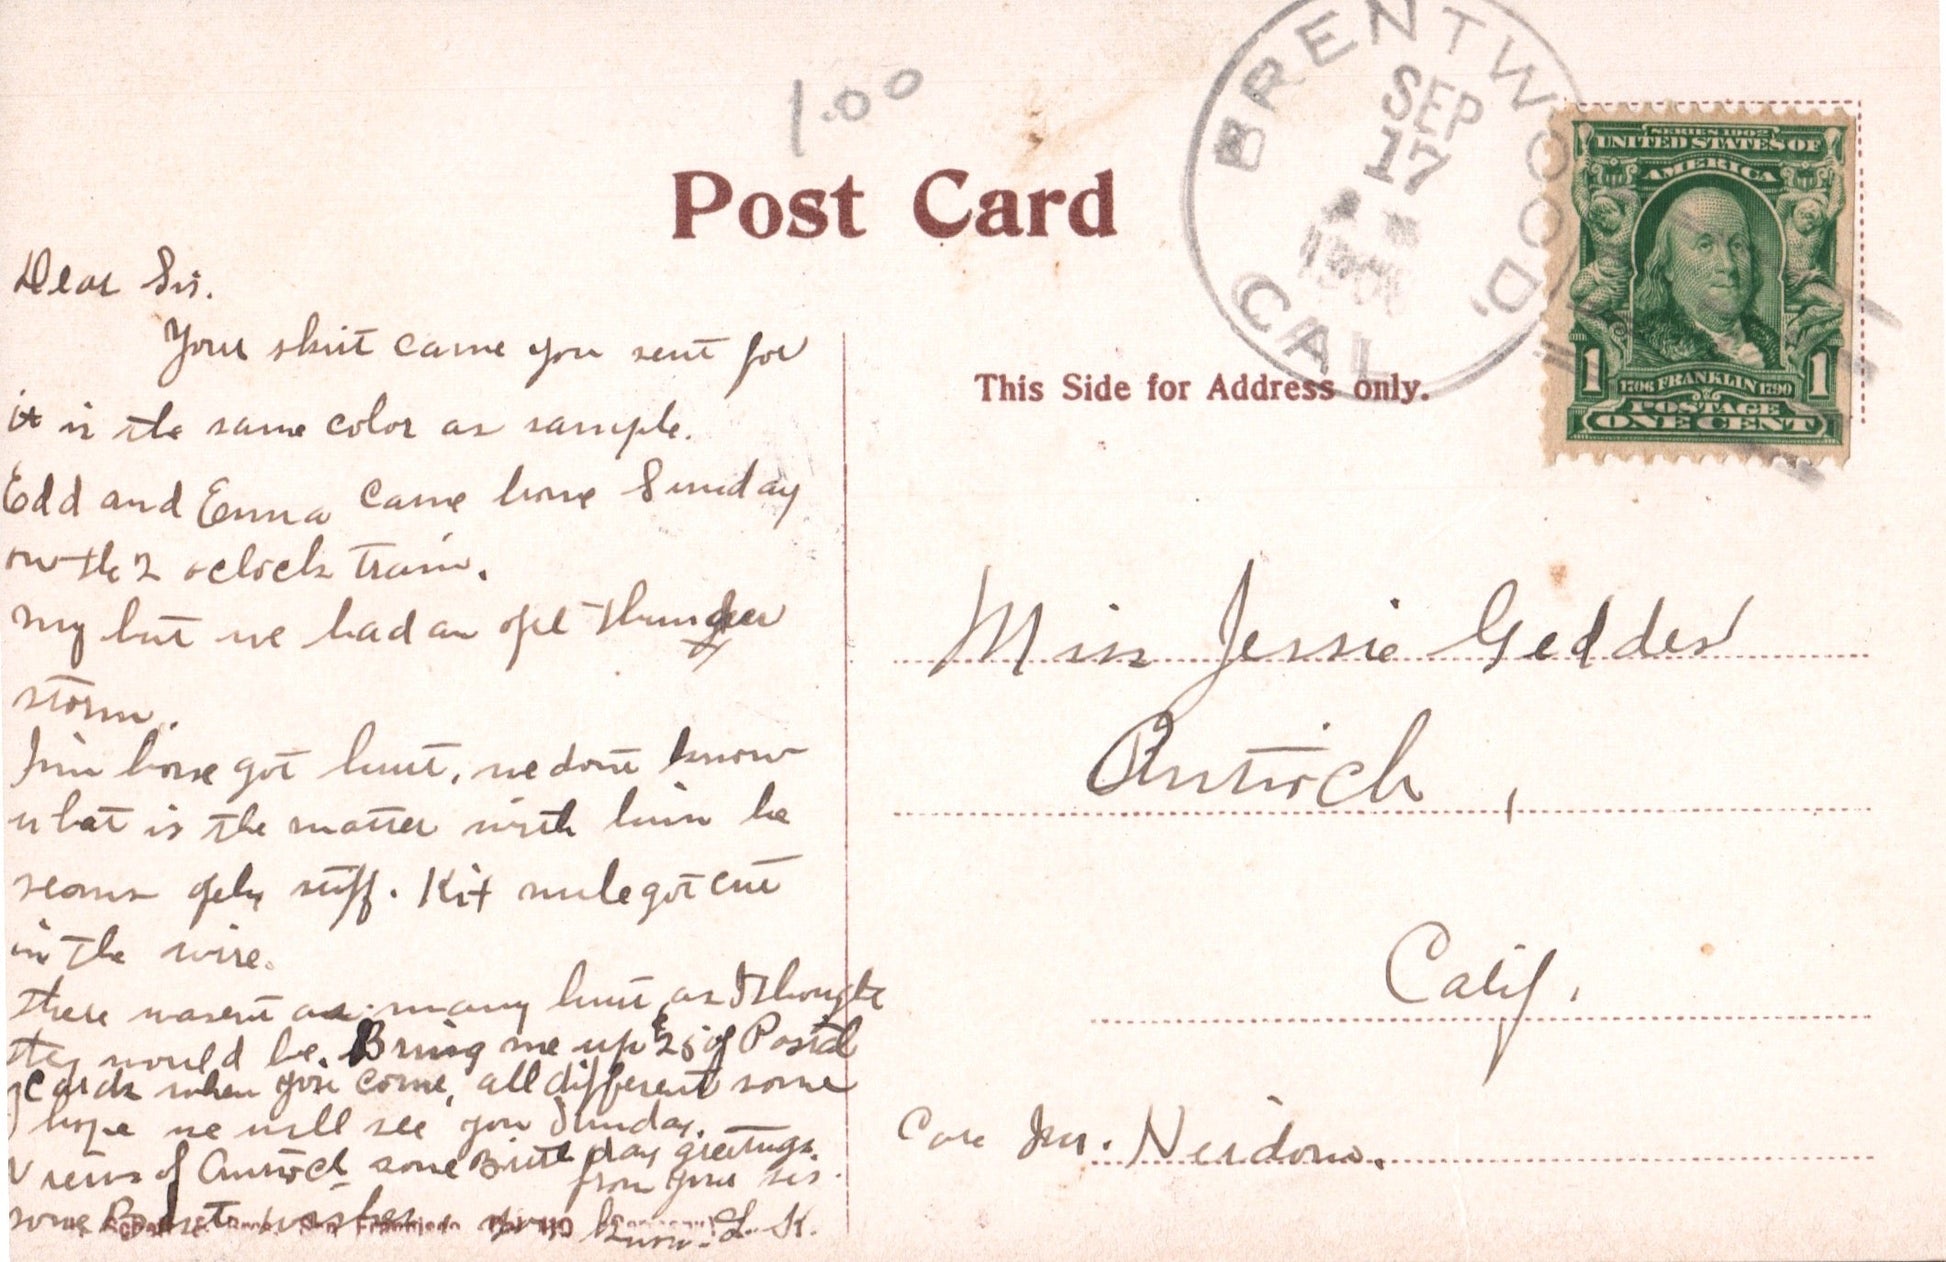 1.00
BRENTWOOD,
SEP
17
CAL
SERIES 1902
UNITED STATES OF
AMERICA
1 1
1706 FRANKLIN 1790
POSTAGE
ONE CENT
Post Card
This Side for Address only.
Dear Sis.
Your skirt came you sent for
it is the same color as sample.
Edd and Emma came home Sunday
on the 2 oclock train.
My but we had an thunder
storm.
Jim horse got hurt, we dont know
what is the matter with him he
seams stiff. Kit mule got cut
in the wire.
there wasent as many hurt as I thought
they would be. Bring me up 25 of Postal
cards when you come, all different some
I hope we will see you Sunday.
views of Antioch some Birth day greetings.
from your sis.
some Best wishes you know. L. K.
Miss Jessie Geddes
Antioch,
Calif.
Care